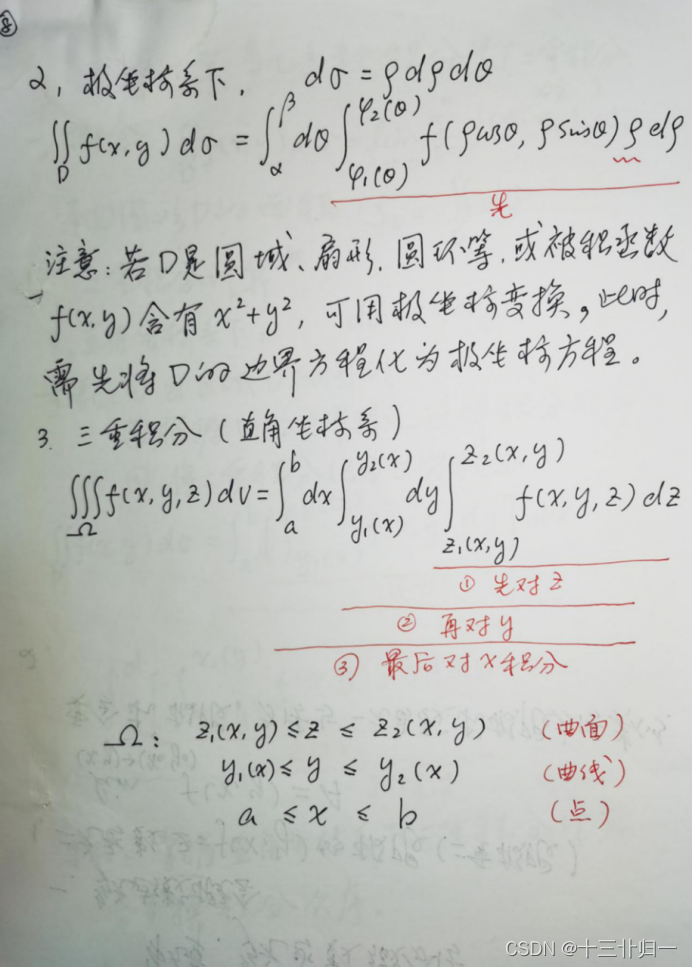 ⑧
2, 极坐标系下, dσ = ρdρdθ
∬_D f(x,y)dσ = ∫_α^β dθ ∫_{φ₁(θ)}^{φ₂(θ)} f(ρcosθ, ρsinθ) ρ dρ
先
注意: 若D是圆域、扇形, 圆环等, 或被积函数
f(x,y)含有 x²+y², 可用极坐标变换。此时,
需先将D的边界方程化为极坐标方程。
3. 三重积分 (直角坐标系)
∭_Ω f(x,y,z)dv = ∫_a^b dx ∫_{y₁(x)}^{y₂(x)} dy ∫_{z₁(x,y)}^{z₂(x,y)} f(x,y,z)dz
① 先对z
② 再对y
③ 最后对x积分
Ω: z₁(x,y) ≤ z ≤ z₂(x,y) (曲面)
y₁(x) ≤ y ≤ y₂(x) (曲线)
a ≤ x ≤ b (点)
CSDN @十三卝归一